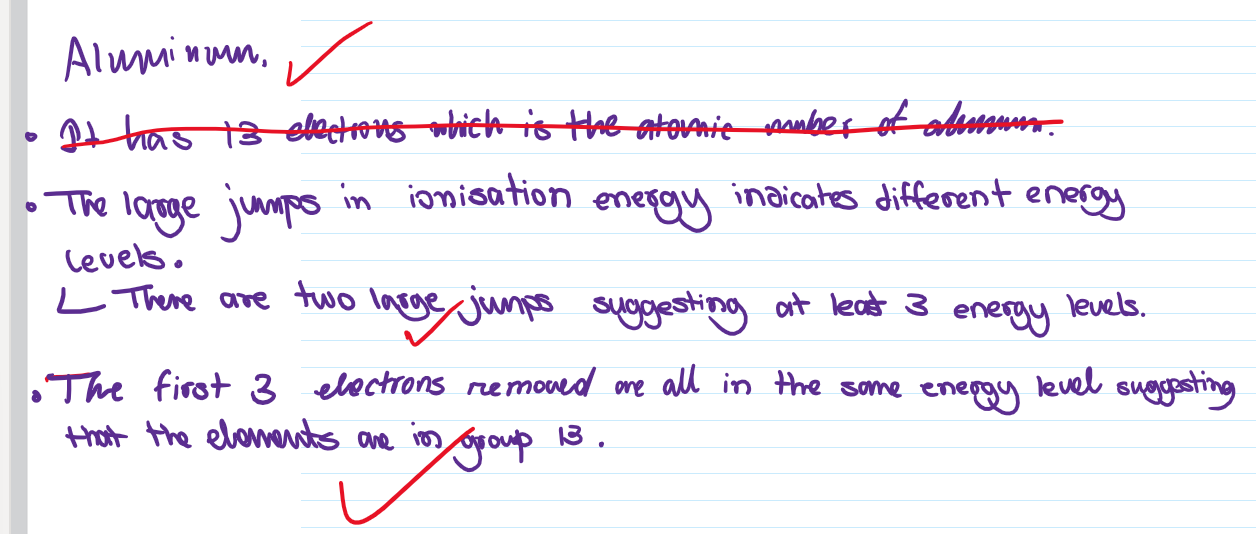 Aluminum.
• It has 13 electrons which is the atomic number of aluminum.
• The large jumps in ionisation energy indicates different energy
levels.
There are two large jumps suggesting at least 3 energy levels.
• The first 3 electrons removed are all in the same energy level suggesting
that the elements are in group 13.